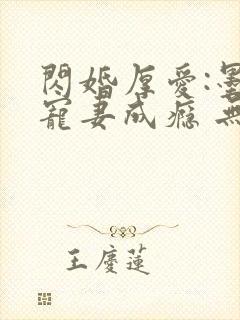 閃婚厚愛:墨
寵妻成癮 無
王慶蓮